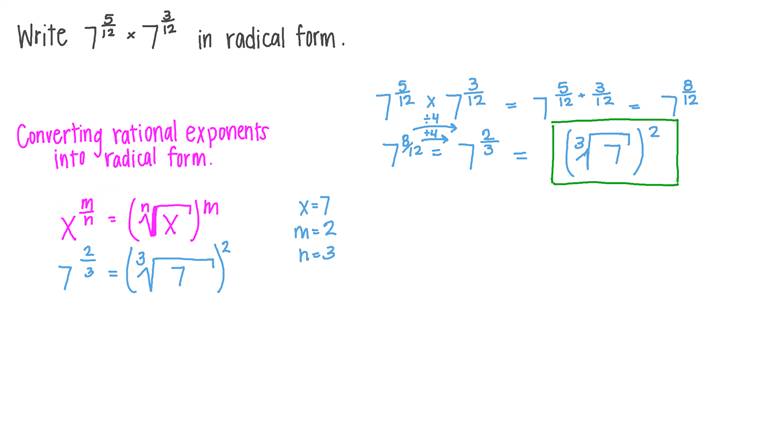 Write 7^(5/12) × 7^(3/12) in radical form.
7^(5/12) × 7^(3/12) = 7^(5/12 + 3/12) = 7^(8/12)
÷4
7^(8/12) = 7^(2/3) = (∛7)^2
÷4
Converting rational exponents
into radical form.
x^(m/n) = (ⁿ√x)^m
x=7
m=2
n=3
7^(2/3) = (∛7)^2